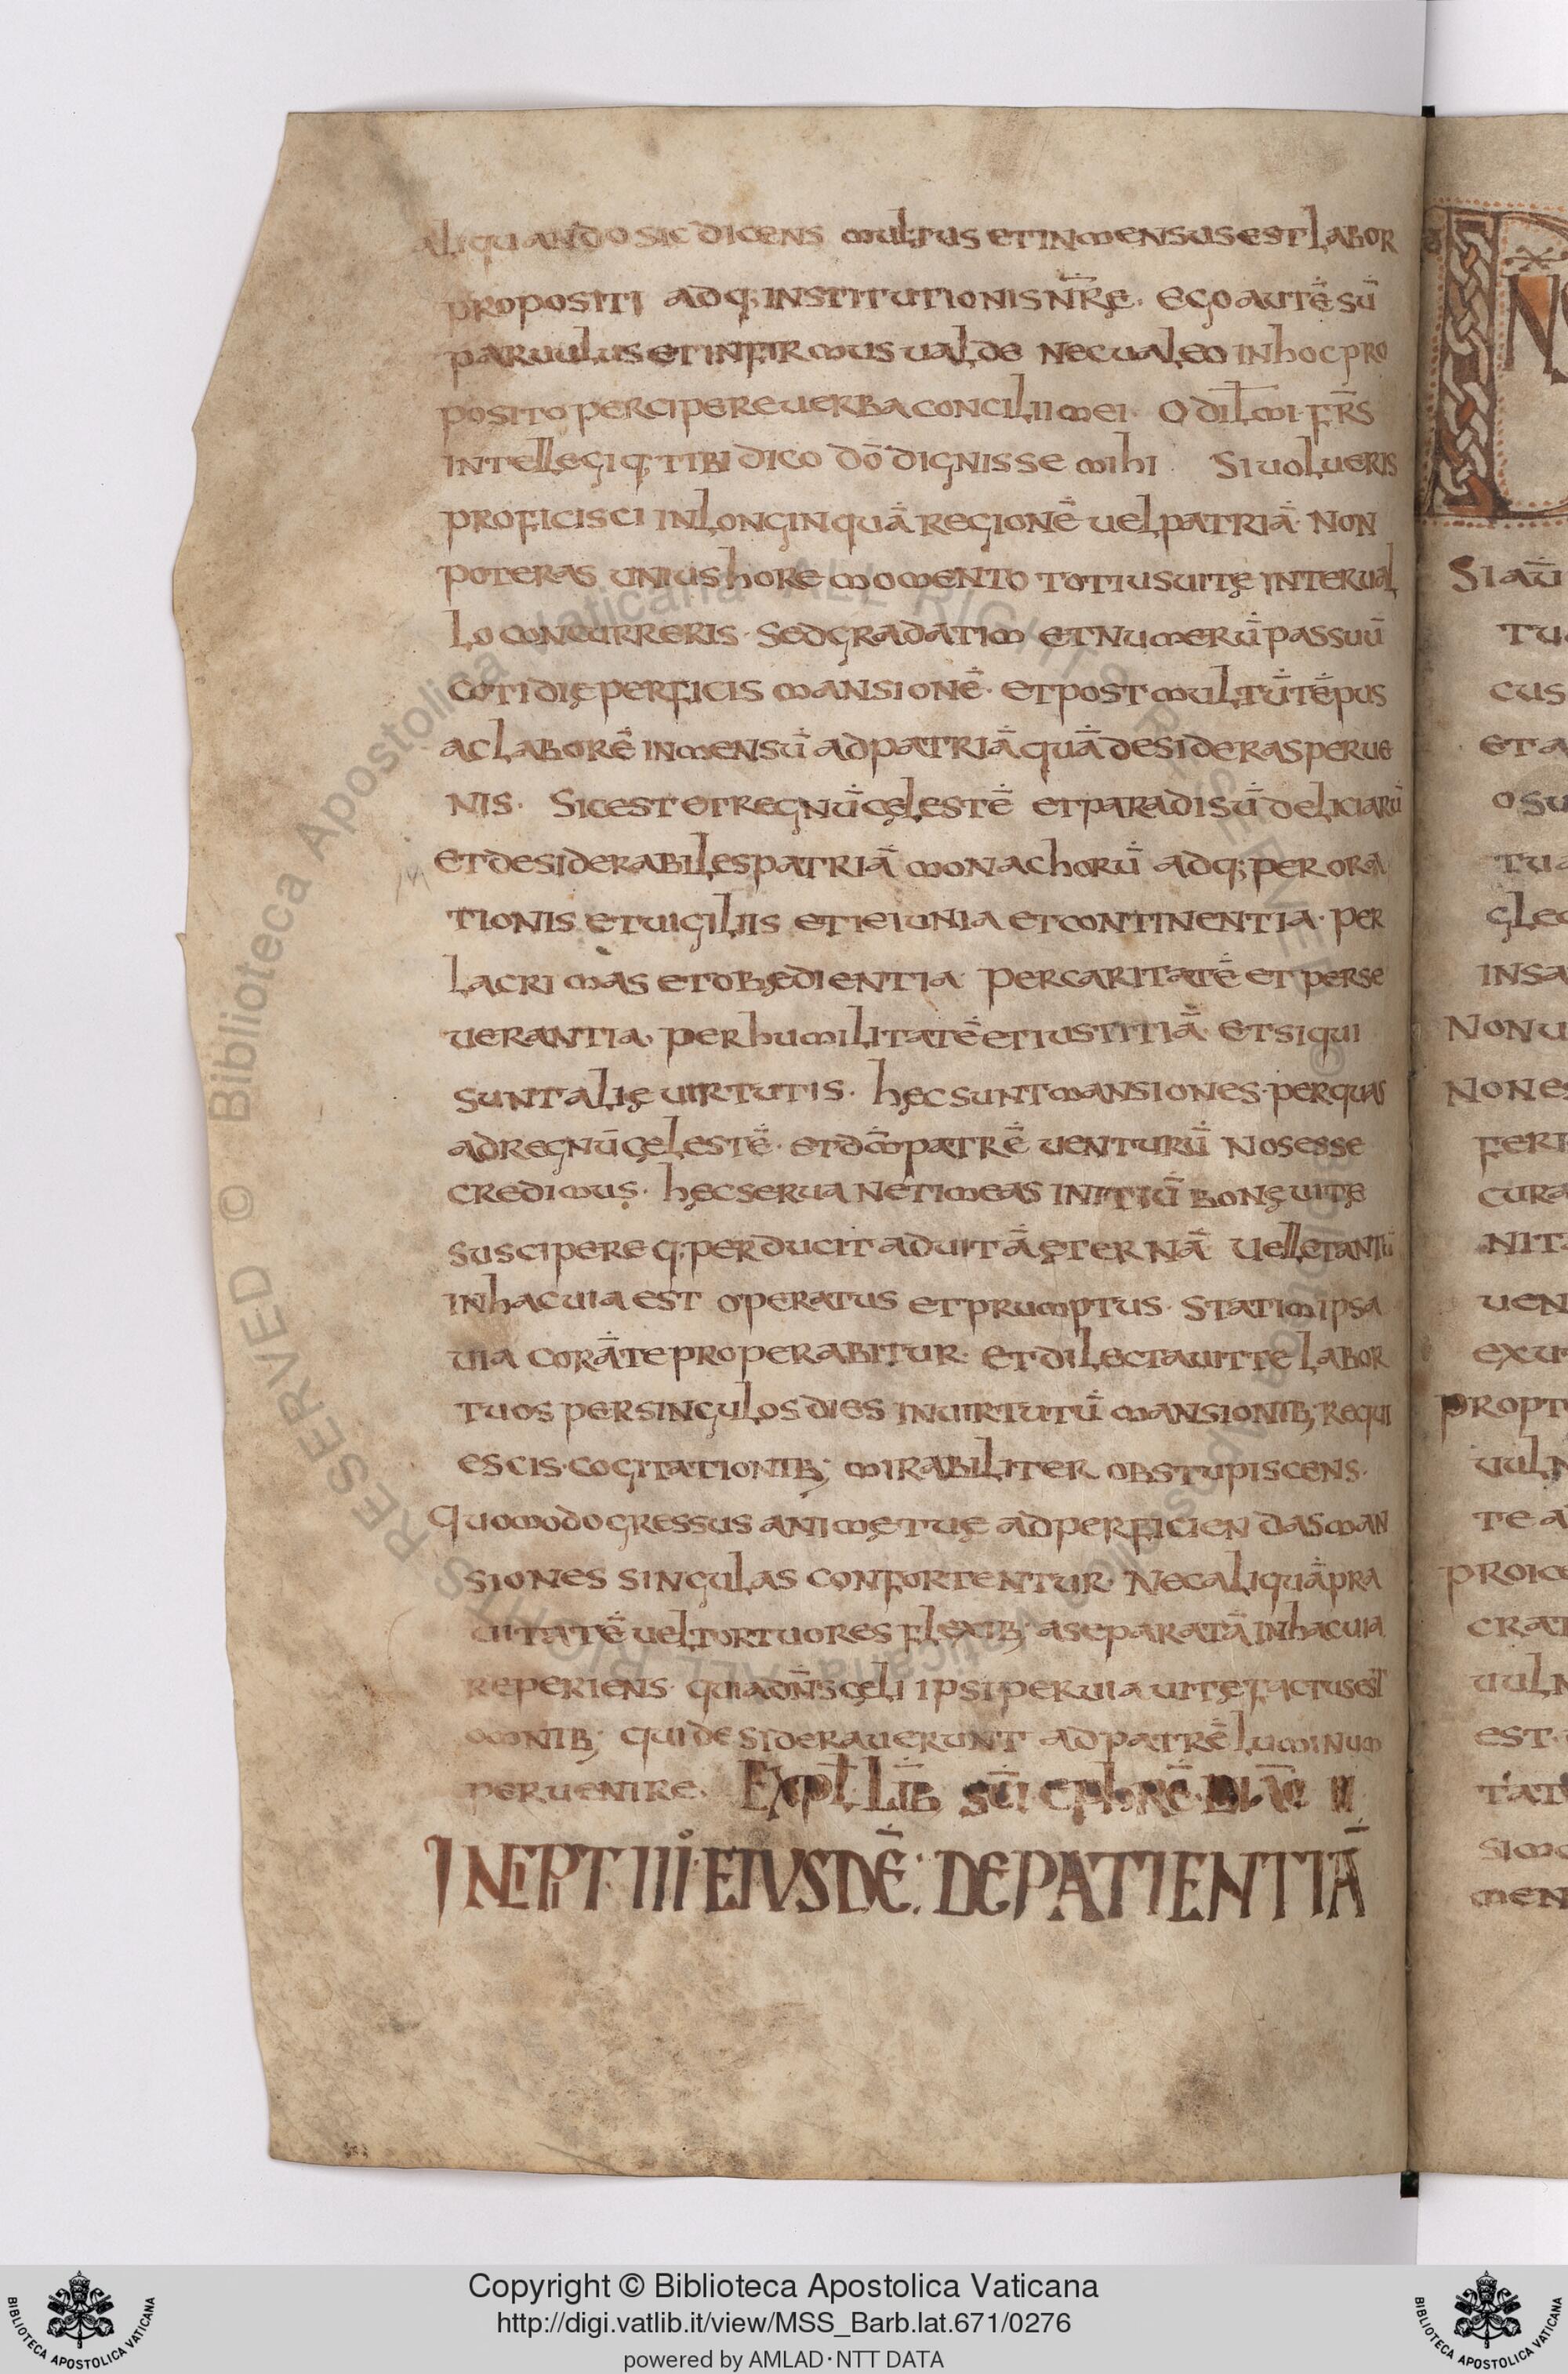 aliquando sic dicens multus et inmensus est labor
propositi adq; institutionis nr̄ę. ego autē sū
paruulus et infirmus ualde nec ualeo in hoc pro
posito percipere uerba concilii mei. O dil̄ mi fr̄s
intellegi q; tibi dico dō dignisse mihi. Si uolueris
proficisci in longinquā regionē uel patriā. Non
poteras unius hore momento totius uitę interual
lo concurreris. Sed gradatim et numerū passuū
cotidię perficis mansionē. et post multū tēpus
ac laborē inmensū ad patriā quā desideras perue
nis. Sic est et regnū cęlestē et paradisū deliciarū
et desiderabiles patriā monachorū adq; per ora
tionis et uigiliis et ieiunia et continentia. per
lacrimas et obędientia. per caritatē et perse
uerantia. per humilitatē et iustitiā. et si qui
sunt alię uirtutis. hęc sunt mansiones. per quas
ad regnū cęlestē. et dm̄ patrē uenturū nos esse
credimus. hęc serua ne timeas initiū bonę uitę
suscipere q; perducit ad uitā ęternā. Uelle tantū
in hac uia est operatus et prumptus. statim ipsa
uia corā te properabitur. et dilectauit te labor
tuos per singulos dies in uirtutū mansionib; requi
escis. cogitationib; mirabiliter obstupiscens.
Quomodo gressus animę tuę ad perficiendas man
siones singulas confortentur. Nec aliquā pra
uitatē uel tortuores flexib; aseparatā in hac uia
reperiens. quia dn̄s cęli ipsi peruia uitę factus est
omnib; qui desiderauerunt ad patrē luminum
peruenire. Expl̄. Lib̄ sc̄i ephrē
INCIPT IIIº EIUSDĒ: DE PATIENTIĀ
Si aū
tu
cus
et a
osu
tua
glec
insa
Non u
Non es
feri
cura
nit
uen
exu
propt
uuln
te a
proice
crat
uuln
est.
tat
simo
men
Copyright © Biblioteca Apostolica Vaticana
http://digi.vatlib.it/view/MSS_Barb.lat.671/0276
powered by AMLAD·NTT DATA
BIBLIOTECA APOSTOLICA VATICANA
BIBLIOTECA APOSTOLICA VATICANA
Biblioteca Apostolica Vaticana ALL RIGHTS RESERVED ©
Biblioteca Apostolica Vaticana ALL RIGHTS RESERVED ©